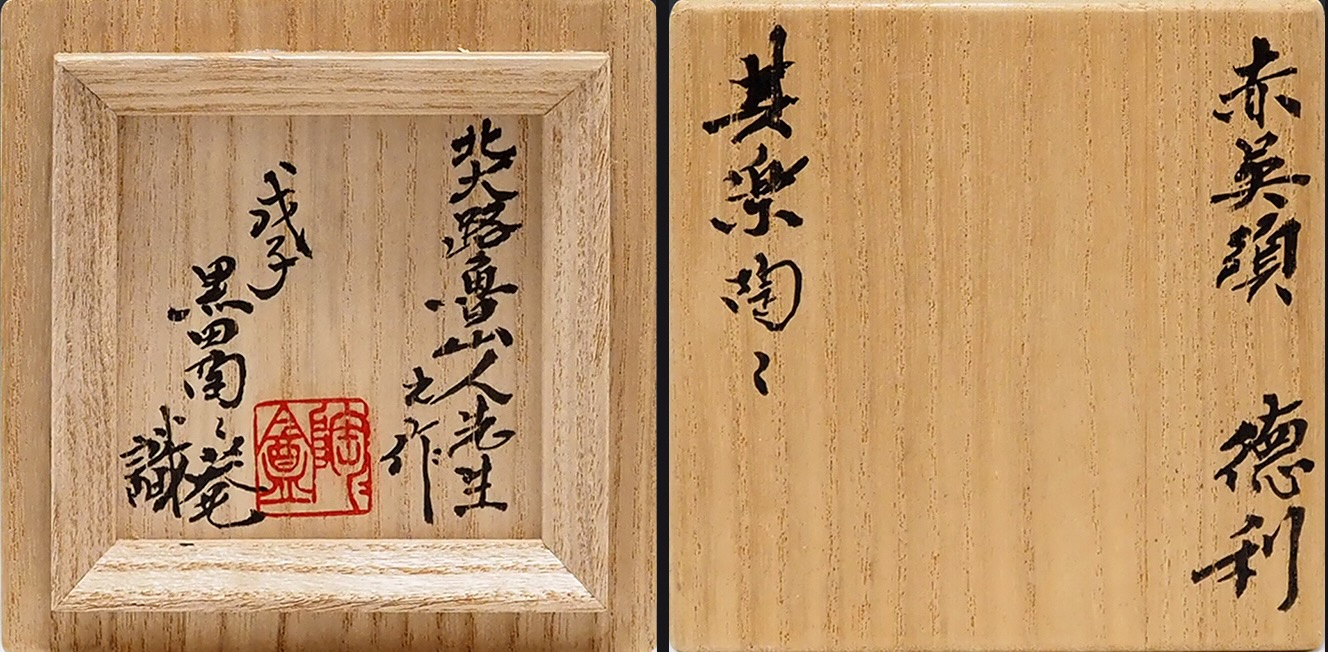 北大路魯山人先生
之作
戊子
黒田陶々菴
識
陶々盦
赤呉須 徳利
其楽陶々